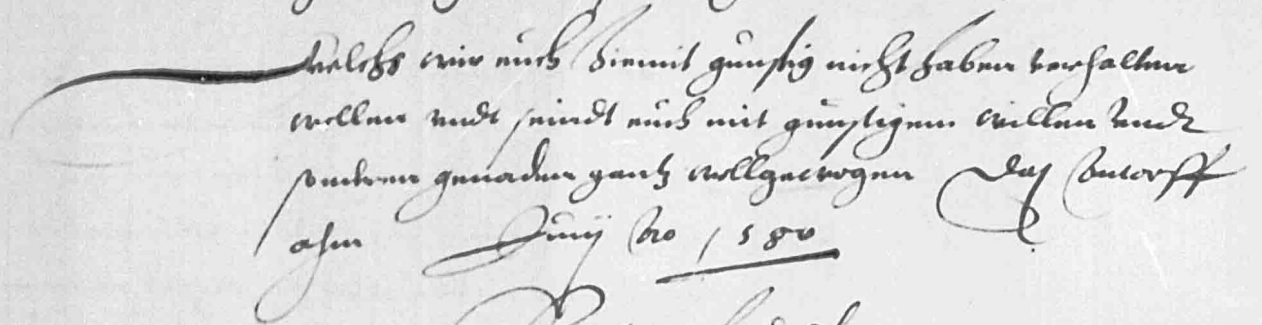 welchs wir euch hiemit günstig nicht haben verhalten
wollen undt seindt euch mit günstigem willen undt
sonderen genaden gantz wollgewogen Dat Antorff
ahm Junij Ao 1580